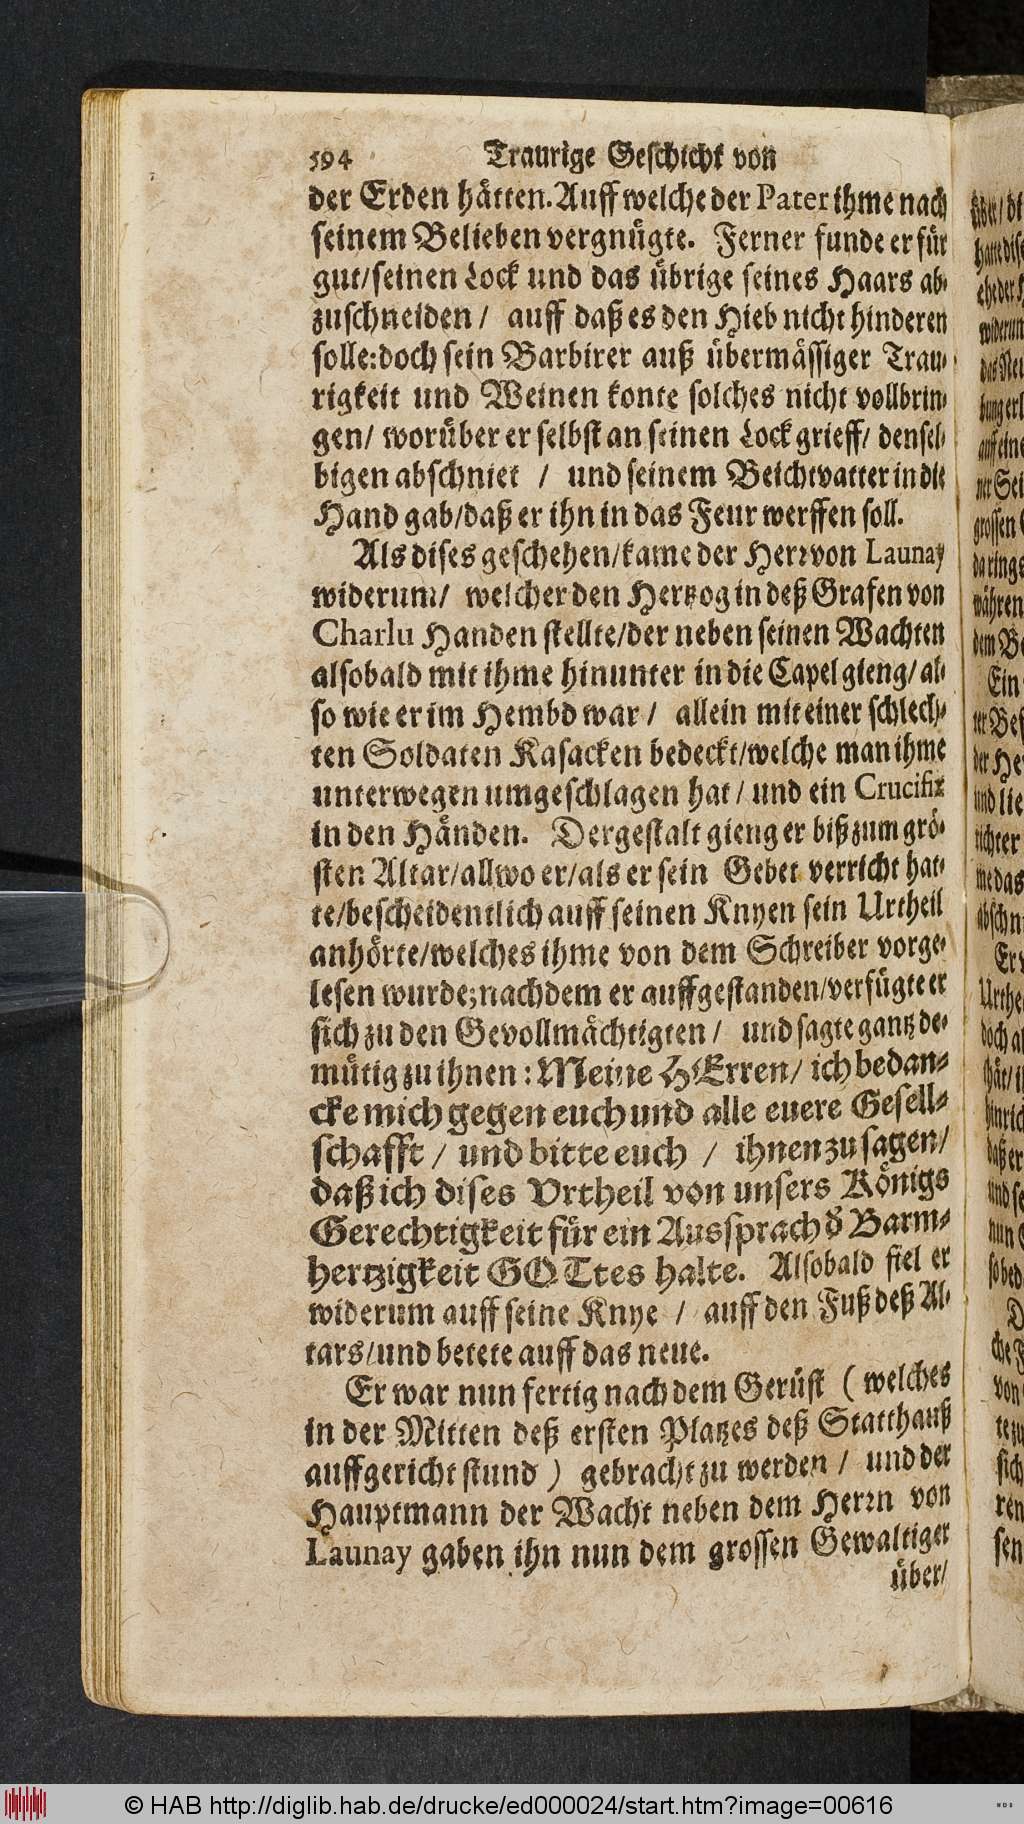 594 Traurige Geschicht von
der Erden hätten. Auff welche der Pater ihme nach
seinem Belieben vergnügte. Ferner funde er für
gut/ seinen Lock und das übrige seines Haars ab-
zuschneiden / auff daß es den Hieb nicht hinderen
solle: doch sein Barbirer auß übermässiger Trau-
rigkeit und Weinen konte solches nicht vollbrin-
gen/ worüber er selbst an seinen Lock grieff/ densel-
bigen abschniet / und seinem Beichtvatter in die
Hand gab/ daß er ihn in das Feur werffen soll.
Als dises geschehen/ kame der Herr von Launay
widerum/ welcher den Hertzog in deß Grafen von
Charlu Handen stellte/ der neben seinen Wachten
alsobald mit ihme hinunter in die Capel gieng/ al-
so wie er im Hembd war / allein mit einer schlech-
ten Soldaten Kasacken bedeckt/ welche man ihme
unterwegen umgeschlagen hat / und ein Crucifix
in den Händen. Dergestalt gieng er biß zum grö-
sten Altar/ allwo er/ als er sein Gebet verricht hat-
te/ bescheidentlich auff seinen Knyen sein Urtheil
anhörte/ welches ihme von dem Schreiber vorge-
lesen wurde; nachdem er auffgestanden/ verfügte er
sich zu den Gevollmächtigten / und sagte gantz de-
mütig zu ihnen: Meine HErren/ ich bedan-
cke mich gegen euch und alle euere Gesell-
schafft / und bitte euch / ihnen zu sagen/
daß ich dises Vrtheil von unsers Königs
Gerechtigkeit für ein Aussprach d̕ Barm-
hertzigkeit GOTtes halte. Alsobald fiel er
widerum auff seine Knye / auff den Fuß deß Al-
tars/ und betete auff das neue.
Er war nun fertig nach dem Gerüst ( welches
in der Mitten deß ersten Platzes deß Statthauß
auffgericht stund ) gebracht zu werden / und der
Hauptmann der Wacht neben dem Herrn von
Launay gaben ihn nun dem grossen Gewaltiger
über/
© HAB http://diglib.hab.de/drucke/ed000024/start.htm?image=00616